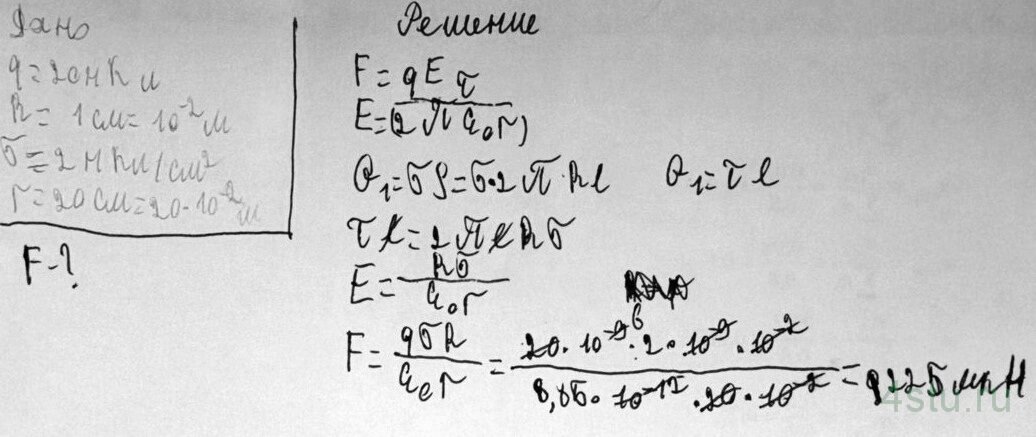 Дано
q = 20 нКл
R = 1 см = 10⁻² м
σ = 2 нКл/см²
r = 20 см = 20·10⁻² м
F-?
Решение
F = qE
E = τ/(2πε₀r)
Q₁ = σS = σ·2π·Rl Q₁ = τl
τl = 2πlRσ
E = Rσ/ε₀r
F = qσR/ε₀r = 20·10⁻⁹·2·10⁻⁹·10⁻²/8,85·10⁻¹²·20·10⁻² =
4stu.ru